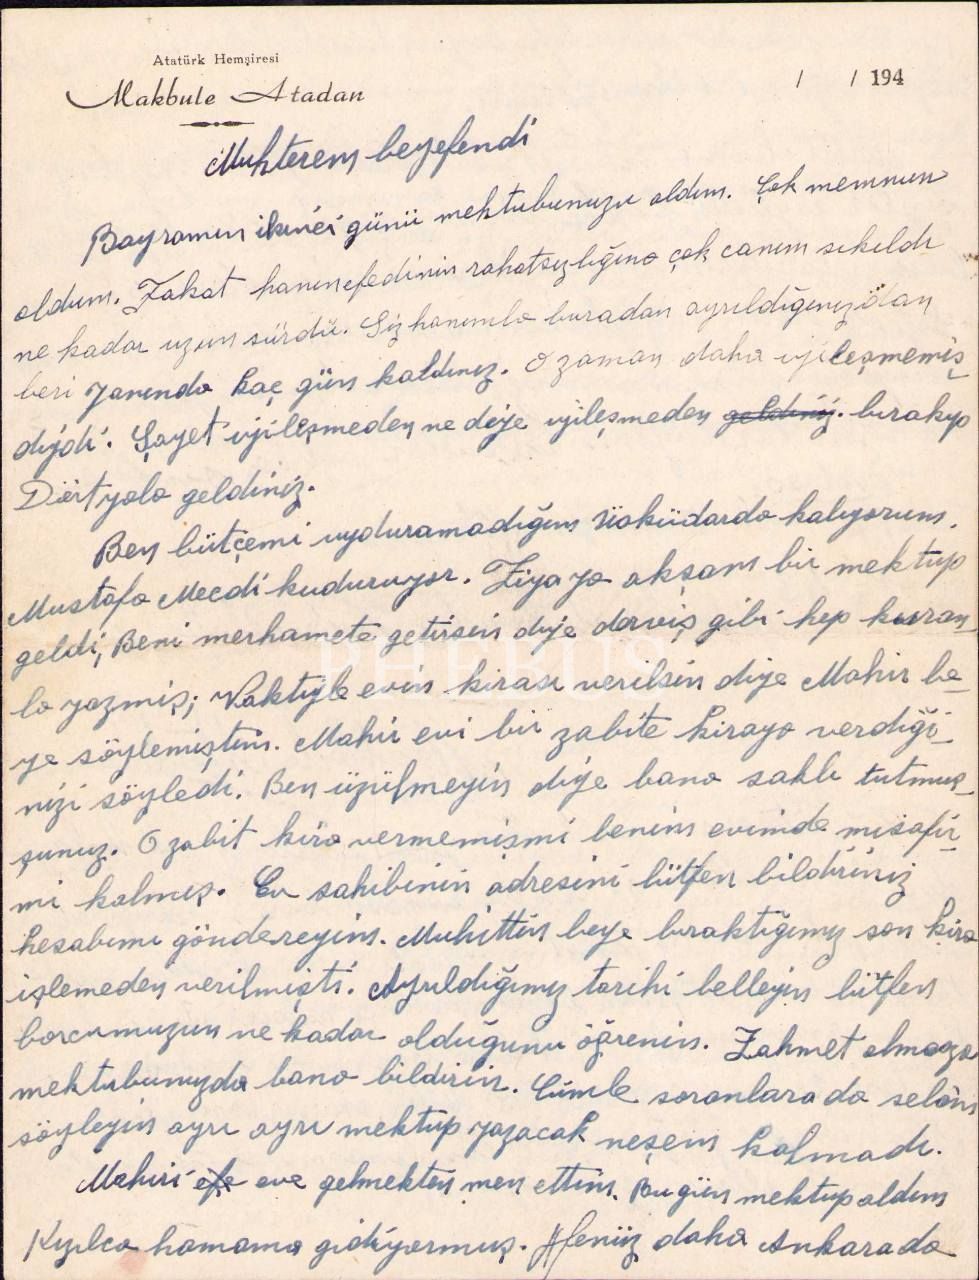 Atatürk Hemşiresi
Makbule Atadan
/ / 194
Muhterem beyefendi
Bayramın ikinci günü mektubunuzu aldım. Çok memnun
oldum. Fakat hanımefedinin rahatsızlığına çok canım sıkıldı
ne kadar uzun sürdü. Siz hanımla buradan ayrıldığınızdan
beri yanında kaç gün kaldınız. O zaman daha iyileşmemiş
diydi. Şayet iyileşmeden ne diye iyileşmeden geldiniz. bırakıp
Dörtyola geldiniz.
Ben bütçemi uyduramadığım Üsküdarda kalıyorum.
Mustafa Mecdi kuduruyor. Ziya ya akşam bir mektup
geldi, Beni merhamete getirsin diye derviş gibi hep kuran_
la yazmış; Vaktiyle evin kirası verilsin diye Mahir be_
ye söylemiştim. Mahir evi bir zabite kiraya verdiği_
nizi söyledi. Ben üzülmeyin diye bana saklı tutmuş_
şunuz. O zabit kira vermemişmi benim evimde misafir_
mi kalmış. Ev sahibinin adresini lütfen bildiriniz
hesabımı göndereyim. Muhittin beye bıraktığımız son kira
işlemeden verilmişti. Ayrıldığımız tarihi belleyin lütfen
borcumuzun ne kadar olduğunu öğrenin. Zahmet olmazsa
mektubunuzda bana bildirin. Cümle soranlara da selâm
söyleyin ayrı ayrı mektup yazacak neşem kalmadı.
Mahiri eve gelmekten men ettim. Bugün mektup aldım
Kızılca hamama gidiyormuş. Henüz daha Ankarada
PHEBUS